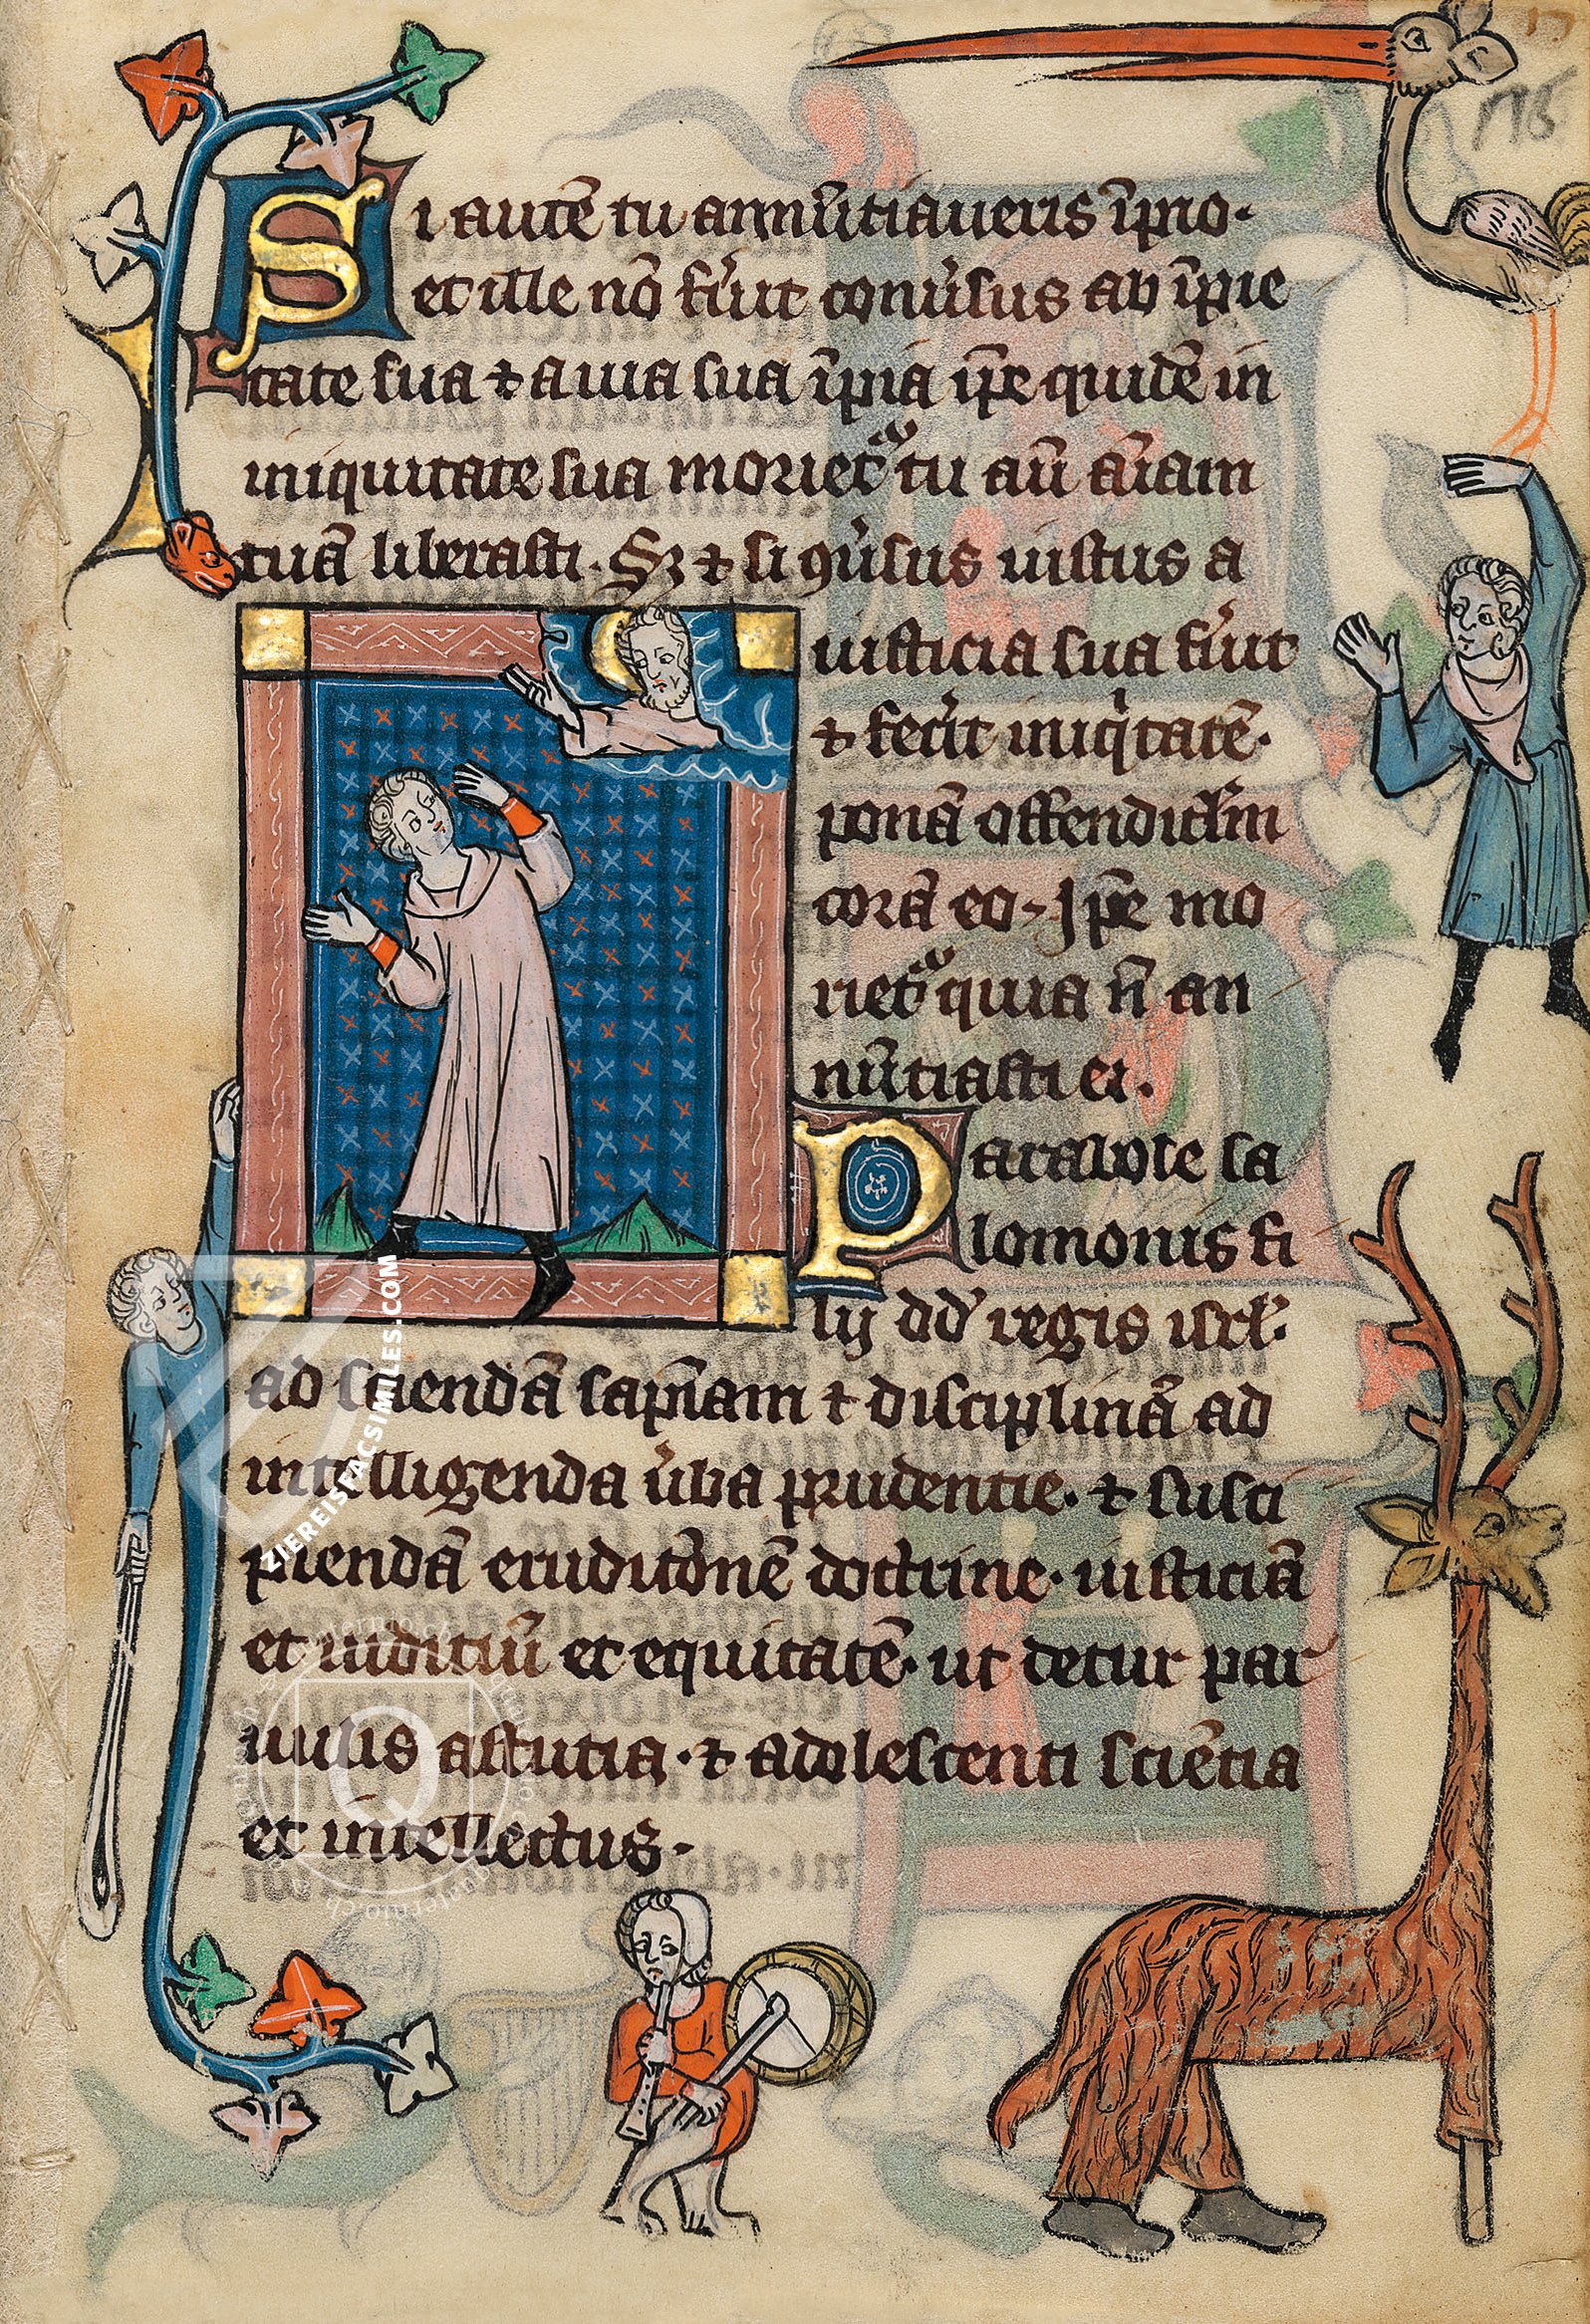 176
Si autē tu annūtiaueris īpio·
et ille nō fu͛it conu͛sus ab īpie
tate sua ⁊ a uia sua īpia ip̄e quidē in
iniquitate sua moriet᷑ tu aū aīam
tuā liberasti. Sꝫ ⁊ si ꝯu͛sus iustus a
iusticia sua fu͛it
⁊ fec͛it iniqͥtatē·
ponā offendicl̄m
corā eo· Ip̄e mo
riet᷑ quia n̄ an
nūtiasti ei.
Parabole sa
lomonis fi
lij dd̄ regis isrl̄.
ad sciendā sapīam ⁊ disciplinā ad
intelligenda u͛ba prudentie. ⁊ susci
piendā eruditōnē doctrine. iusticiā
et iudiciū et equitatē. ut detur par
uulis astutia. ⁊ adolescenti sciētia
et intellectus.
ZIEREISFACSIMILES.COM
Q
quaternio.ch